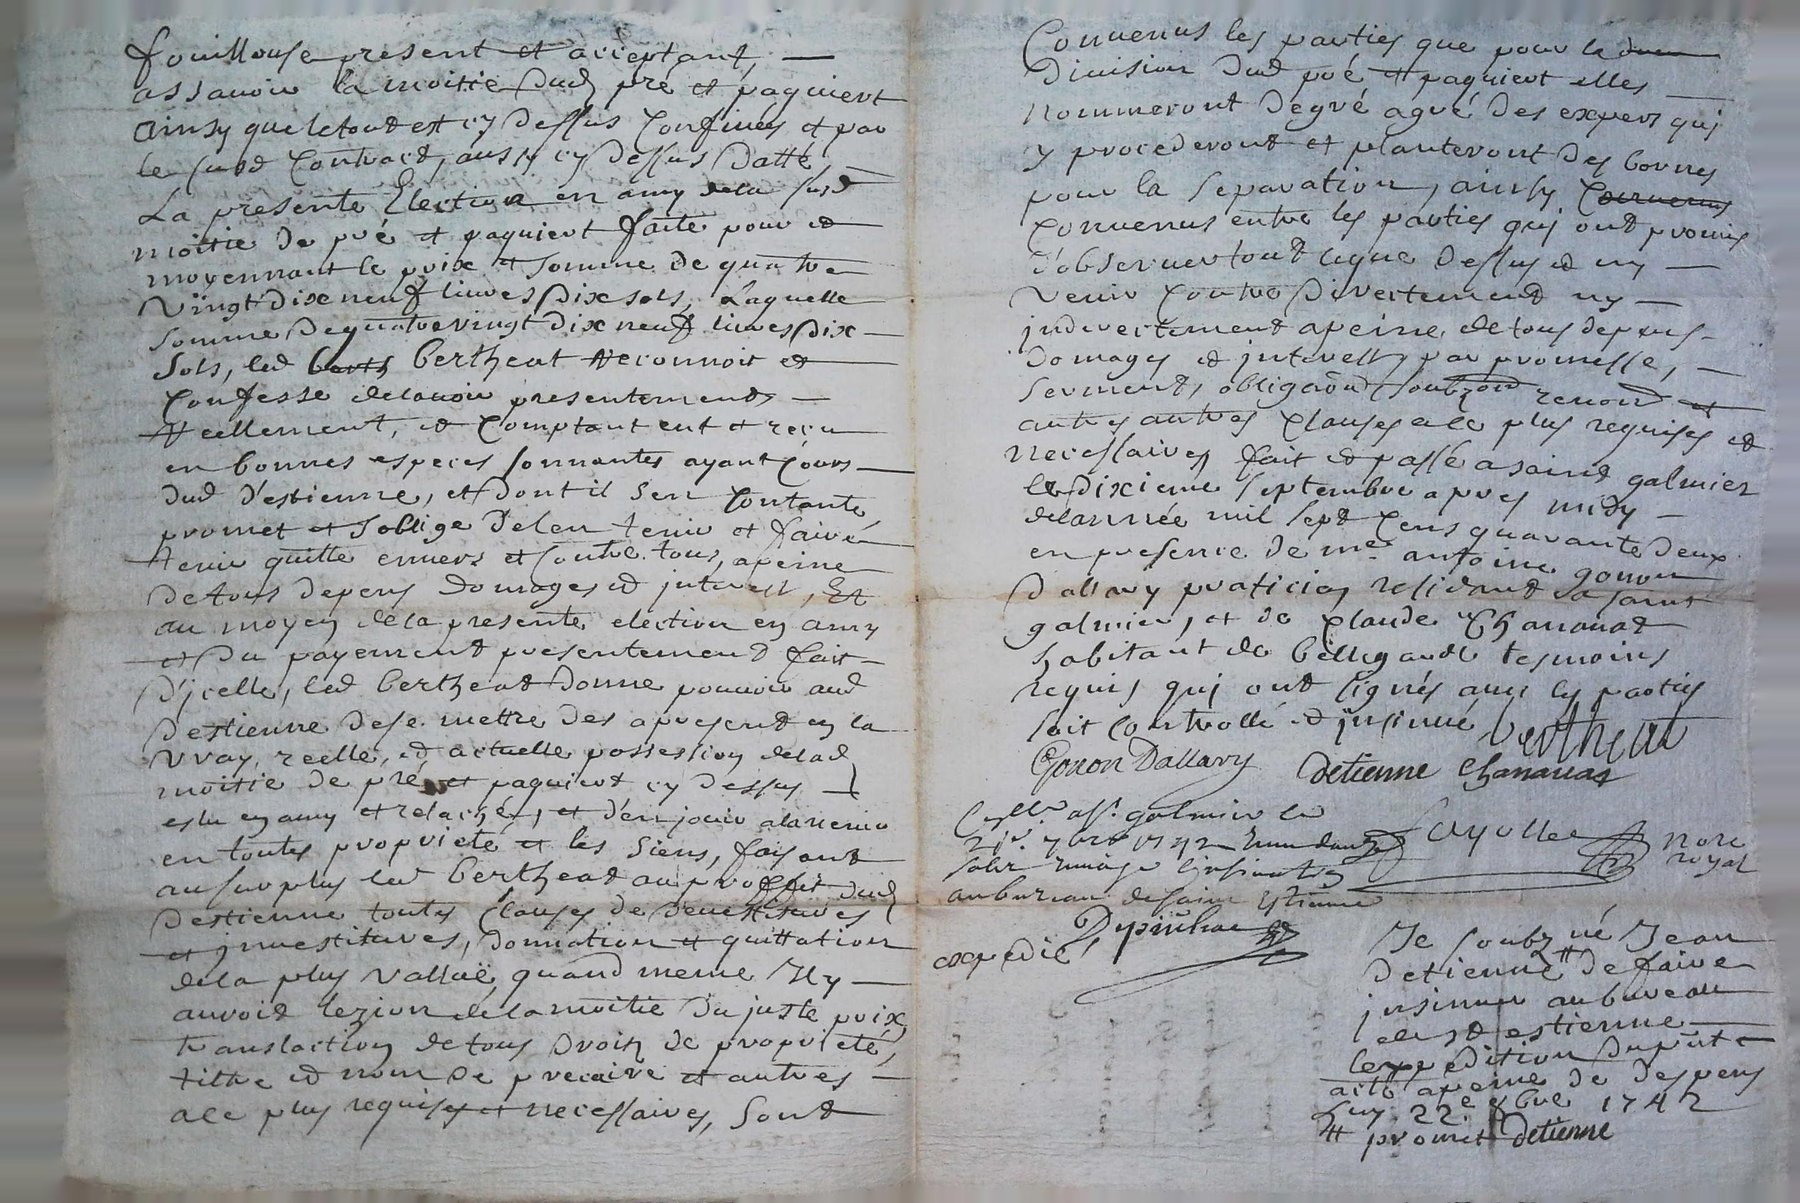 fouillouse present et acceptant, —
assavoir la moitie dud pré et paquiert
ainsy que le tout est cy dessus confinés et par
le susd contract, aussy cy dessus datté, —
La presente Election en amy de la susd
moitie de pré et paquiert faite pour et
moyennant le prix et somme de quatre
vingt dix neuf livres dix sols, Laquelle
somme de quatre vingt dix neuf livres dix —
sols, led berth bertheat reconnoit et —
confesse de lavoir presentement —
reellement, et comptant eut et reçu
en bonnes especes sonnantes ayant cours —
dud d'estienne, et dont il sen contante
promet et soblige de len tenir et faire
tenir quitte envers et contre tous, apeine
de tous depens domages et interest, Et
au moyen de la presente election en amy
et du payement presentement fait —
d'icelle, led bertheat donne pouvoir aud
destienne de se mettre des apresent en la
vray, reelle, et actuelle possession de lad
moitie de pré et paquiert cy dessus —
eslu en amy et relaché, et d'en jouir alavenir
en toutes proprieté et les siens, faisant
au surplus led bertheat au proffit dud
destienne toutes clauses de devestitures
et investitures, donnation et quittation
de la plus vallue, quand meme Il y —
auroit lezion de la moitié du juste prix,
translaction de tous droits de proprieté,
tiltre et nom de precaire et autres —
a ce plus requises et necessaires, sont
Convenus les parties que pour la dven
division dud pré et paquiert elles —
nommeront de gré agré des expers qui
y procederont et planteront des bornes
pour la separation, ainsy convenus
convenus entre les parties qui ont promis
d'observer tout ceque dessus et ny —
venir contre directement ny —
indirectement apeine de tous depens —
domages et interests, par promesse, —
serment, obligaõn, soubzon renon et
autres autres clauses a ce plus requises et
necessaires, fait et passé a saint galmier
le dixieme septembre apres midy —
de lannée mil sept cens quarante deux
en presence de me antoine gonon
Dallary praticien residant a saint
galmier, et de claude Chananat
habitant de bellegarde tesmoins
requis qui ont signés avec les parties
soit controllé et insinué, bertheat
Gonon Dallary detienne Chananat
Conllé a st galmier le
21e 7bre 1742 Fayolle nore royal
au bureau de saint Estienne
expedié
Je soubzné Jean
Detienne # de faire
insinuer au bureau
de st estienne —
lexpedition du pnt
acte apeine de depens
22e 7bre 1742
# promet detienne